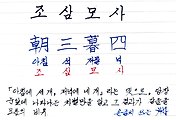 조 삼 모 사
朝 三 暮 四
아침 석 저녁 넉
조 삼 모 사
"아침에 세 개, 저녁에 네 개"라는 뜻으로, 당장
눈앞에 나타나는 차별만을 알고 그 결과가 같음을
모름의 비유 손글씨 쓰는